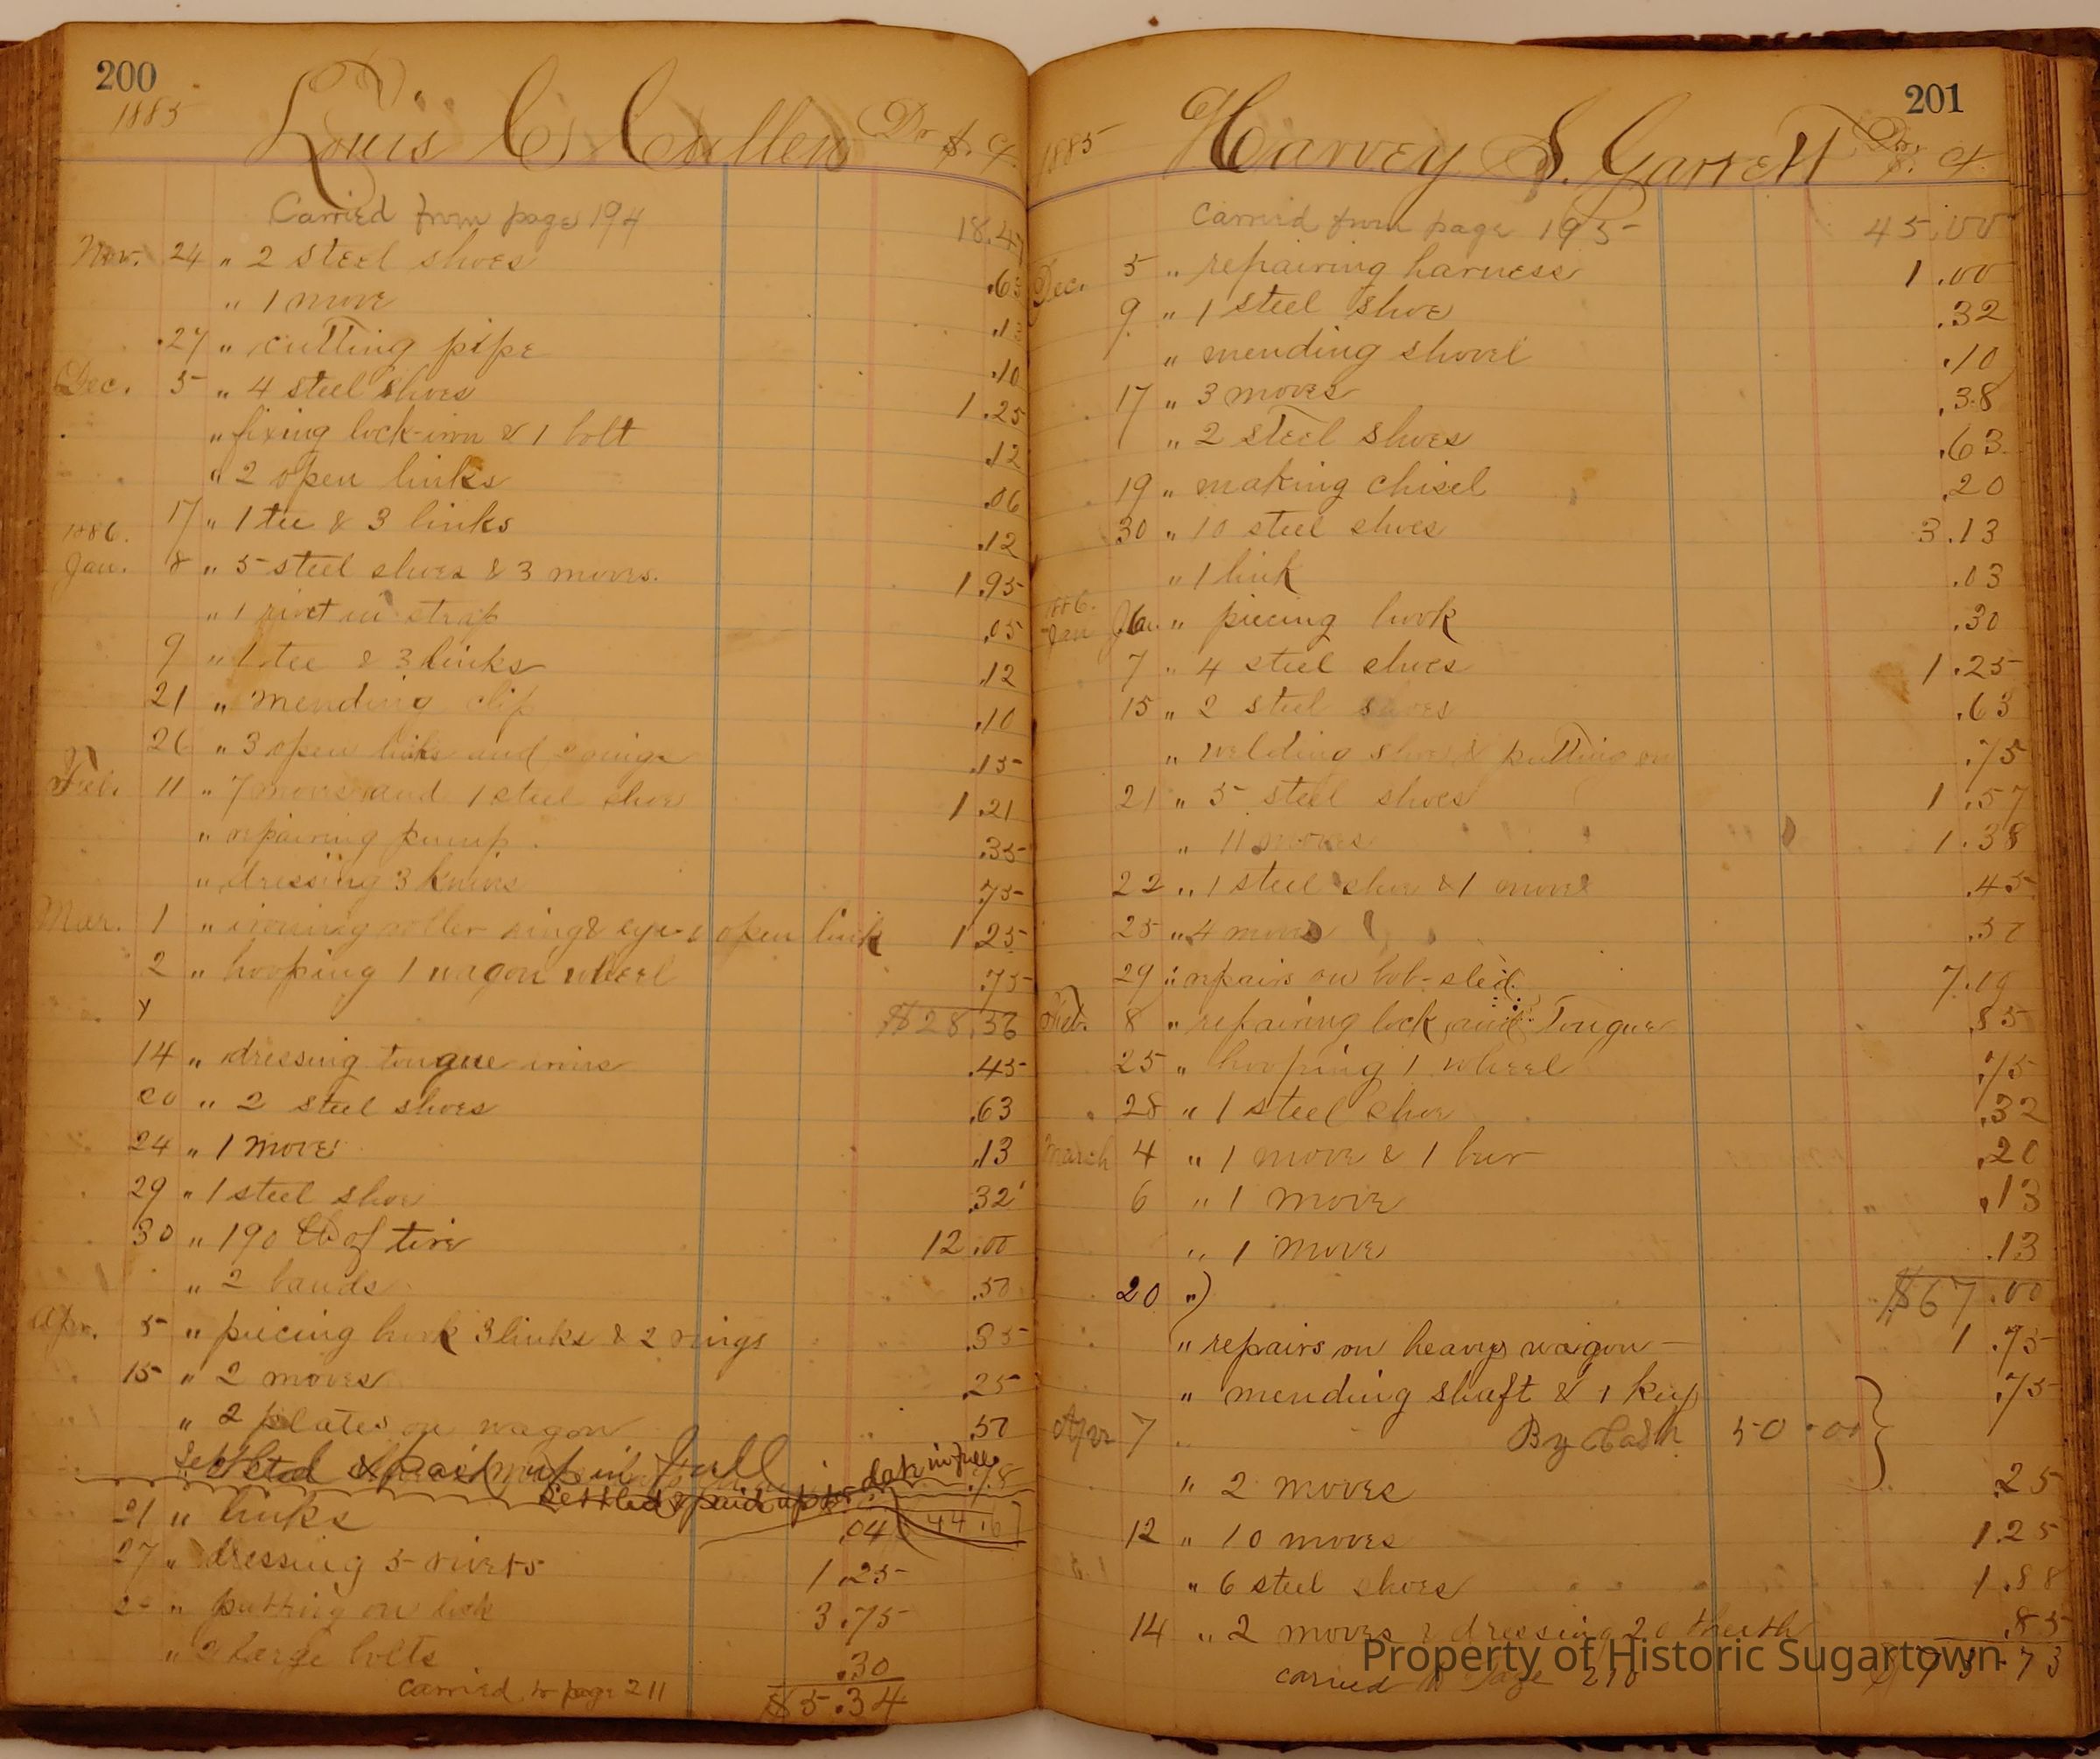 200
1885 Louis C. Cullen Dr $. ct.
Carried from page 194 18.47
Nov. 24 " 2 steel shoes .63
" 1 move .13
27 " cutting pipe .10
Dec. 5 " 4 steel shoes 1.25
" fixing lock-iron & 1 bolt .12
" 2 open links .06
17 " 1 tee & 3 links .12
1886.
Jan. 8 " 5 steel shoes & 3 moves. 1.95
" 1 rivet in strap .05
9 " 1 tee & 3 links .12
21 " mending clip .10
26 " 3 open links and .15
Feb. 11 " 7 moves and 1 steel shoe 1.21
" repairing pump .35
" dressing 3 knives .75
Mar. 1 " ironing roller ring & eye 1 open link 1.25
2 " hooping 1 wagon wheel .75
$28.36
14 " dressing tongue irons .45
20 " 2 steel shoes .63
24 " 1 move .13
29 " 1 steel shoe .32
30 " 190 lb of tire 12.00
" 2 bands .50
Apr. 5 " piecing hook 3 links & 2 rings .35
15 " 2 moves .25
" 2 plates on wagon .50
Settled & paid up in full
Settled & paid up to date in full
44.67
21 " links .04
27 " dressing 5 rivets 1.25
" putting on lock 3.75
" 2 large bolts .30
carried to page 211 $5.34
201
1885 Harvey S. Garrett Dr. $. ct.
Carried from page 195 45.00
Dec. 5 " repairing harness 1.00
9 " 1 steel shoe .32
" mending shovel .10
17 " 3 moves .38
" 2 steel shoes .63
19 " making chisel .20
30 " 10 steel shoes 3.13
" 1 link .03
1886.
Jan 6 " piecing hook .30
7 " 4 steel shoes 1.25
15 " 2 steel shoes .63
" welding shoe & putting on .75
21 " 5 steel shoes 1.57
" 11 moves 1.38
22 " 1 steel shoe & 1 move .45
25 " 4 moves .50
29 " repairs on bob-sled 7.10
Feb. 8 " repairing lock and Tongue .85
25 " hooping 1 wheel .75
28 " 1 steel shoe .32
March 4 " 1 move & 1 bur .20
6 " 1 move .13
" 1 move .13
20 " $67.00
" repairs on heavy wagon 1.75
" mending shaft & 1 key .75
Apr 7 " By Cash 50.00
" 2 moves .25
12 " 10 moves 1.25
" 6 steel shoes 1.88
14 " 2 moves & dressing 20 .85
carried to Page 210 73.73
Property of Historic Sugartown